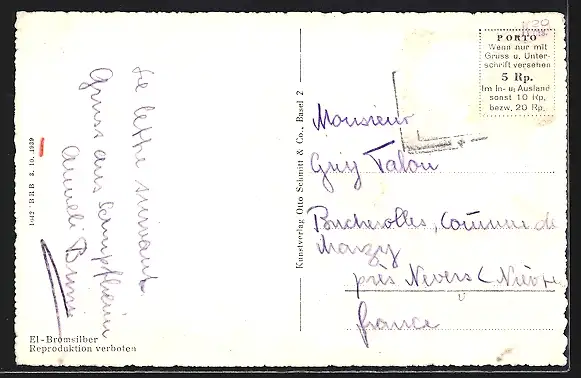 Je lettre suivante
Gruss aus Schüpfheim
Anneli
1642 BRB 3. 10. 1939
El-Bromsilber
Reproduktion verboten
Kunstverlag Otto Schmitt & Co., Basel 2
PORTO
Wenn nur mit
Gruss u. Unter-
schrift versehen
5 Rp.
Im In- u. Ausland
sonst 10 Rp.
bezw. 20 Rp.
Monsieur
Guy Talon
Bucherolles, Commune de
Marzy
près Nevers (Nièvre
france